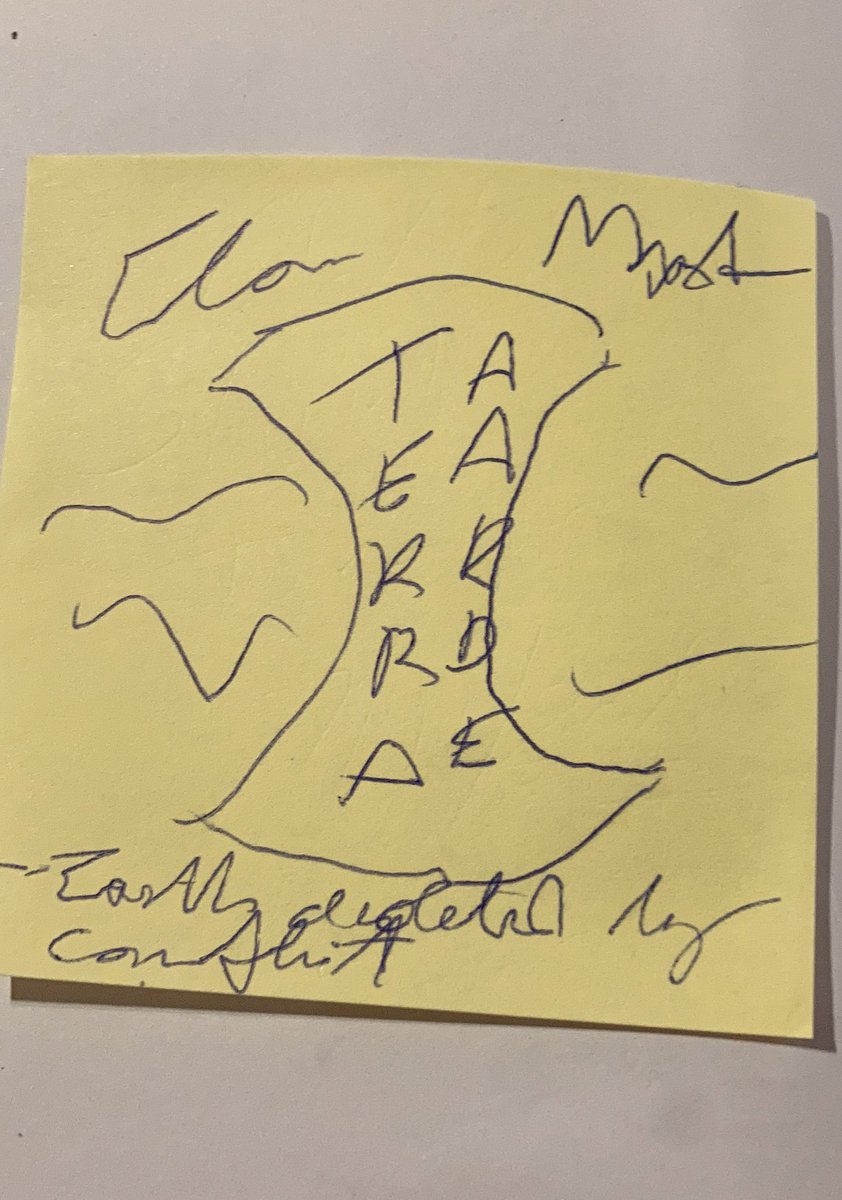 Elon Musk
TERRA
AARDE
- Earth depleted by
conflict